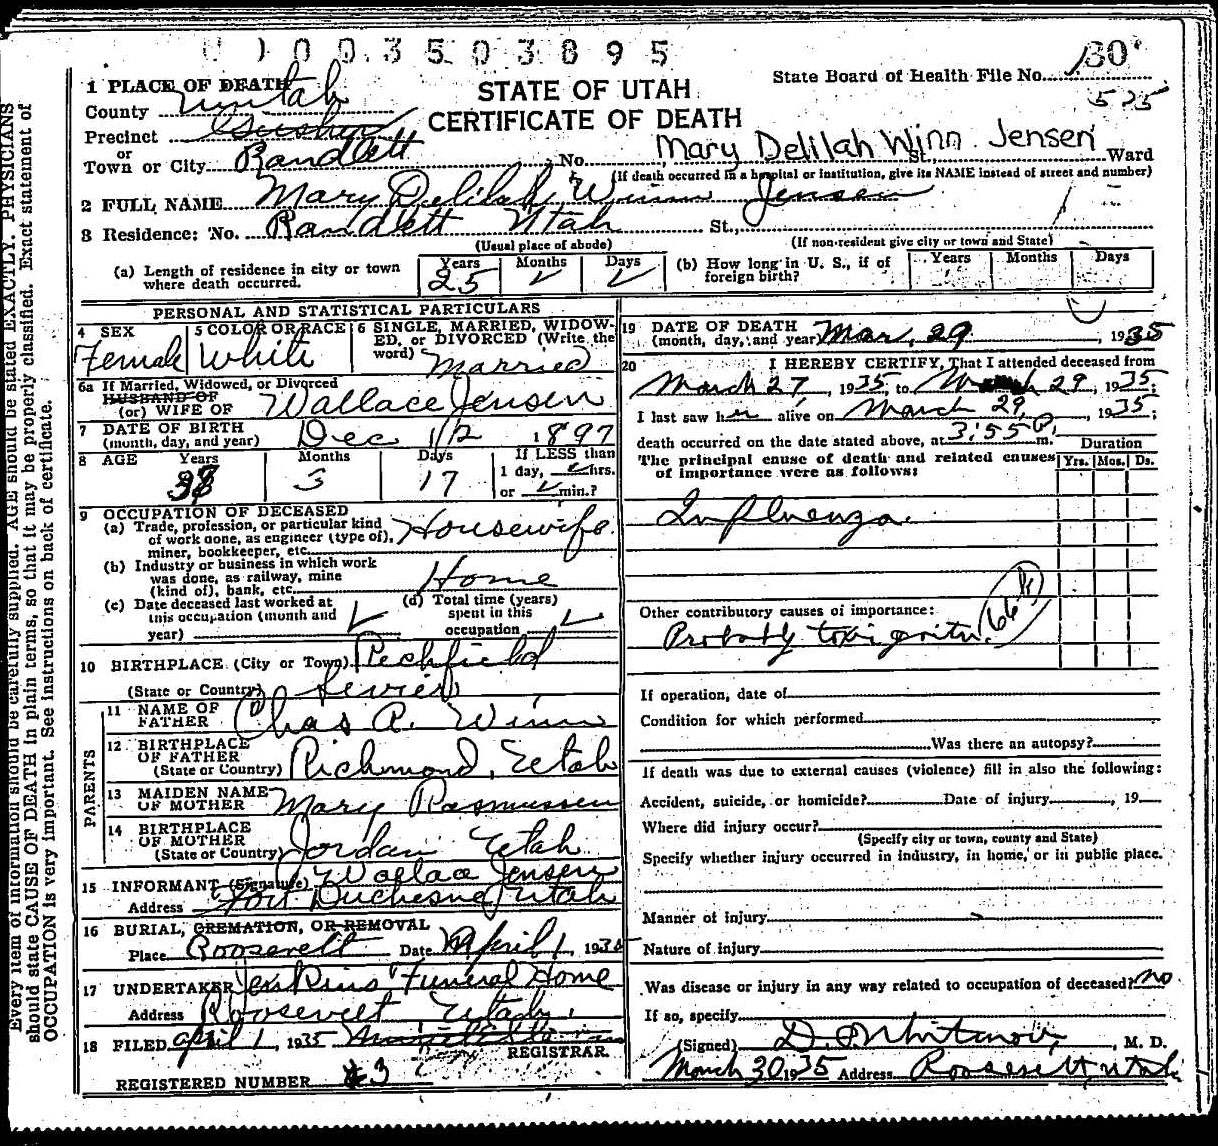 003503895
State Board of Health File No. 130
525
STATE OF UTAH
CERTIFICATE OF DEATH
1 PLACE OF DEATH
County Uintah
Precinct
Town or City Randlett No. St. Ward
Mary Delilah Winn Jensen
(If death occurred in a hospital or institution, give its NAME instead of street and number)
2 FULL NAME Mary Delilah Winn Jensen
3 Residence: No. Randlett Utah St.,
(Usual place of abode) (If non-resident give city or town and State)
(a) Length of residence in city or town where death occurred. Years 25 Months ✓ Days ✓
(b) How long in U. S., if of foreign birth? Years Months Days
PERSONAL AND STATISTICAL PARTICULARS
4 SEX Female
5 COLOR OR RACE White
6 SINGLE, MARRIED, WIDOWED, or DIVORCED (Write the word) Married
6a If Married, Widowed, or Divorced
HUSBAND OF
(or) WIFE OF Wallace Jensen
7 DATE OF BIRTH
(month, day, and year) Dec 12 1897
8 AGE Years Months 3 Days 17 If LESS than
1 day, ✓ hrs.
or ✓ min.?
9 OCCUPATION OF DECEASED
(a) Trade, profession, or particular kind of work done, as engineer (type of), miner, bookkeeper, etc. Housewife
(b) Industry or business in which work was done, as railway, mine (kind of), bank, etc. Home
(c) Date deceased last worked at this occupation (month and year) ✓
(d) Total time (years) spent in this occupation ✓
10 BIRTHPLACE (City or Town) Richfield
(State or Country) Sevier
PARENTS
11 NAME OF FATHER Chas R. Winn
12 BIRTHPLACE OF FATHER
(State or Country) Richmond, Utah
13 MAIDEN NAME OF MOTHER Mary Rasmussen
14 BIRTHPLACE OF MOTHER
(State or Country) Jordan Utah
15 INFORMANT (Signature) Wallace Jensen
Address Fort Duchesne, Utah
16 BURIAL, CREMATION, OR REMOVAL
Place Roosevelt Date April 1 1935
17 UNDERTAKER Jenkins Funeral Home
Address Roosevelt Utah.
18 FILED April 1, 1935
REGISTRAR.
REGISTERED NUMBER #3
19 DATE OF DEATH
(month, day, and year) Mar. 29, 1935
20 I HEREBY CERTIFY, That I attended deceased from
March 27, 1935, to March 29, 1935;
I last saw her alive on March 29, 1935;
death occurred on the date stated above, at 3:55 P. m.
The principal cause of death and related causes of importance were as follows:
Duration
Yrs. Mos. Ds.
Influenza
Other contributory causes of importance:
Probably toxic goitre.
If operation, date of
Condition for which performed
Was there an autopsy?
If death was due to external causes (violence) fill in also the following:
Accident, suicide, or homicide? Date of injury , 19
Where did injury occur?
(Specify city or town, county and State)
Specify whether injury occurred in industry, in home, or in public place.
Manner of injury
Nature of injury
Was disease or injury in any way related to occupation of deceased? no
If so, specify
(Signed) , M. D.
March 30 1935 Address Roosevelt, Utah
Every item of information should be carefully supplied. AGE should be stated EXACTLY. PHYSICIANS
should state CAUSE OF DEATH in plain terms, so that it may be properly classified. Exact statement of
OCCUPATION is very important. See instructions on back of certificate.